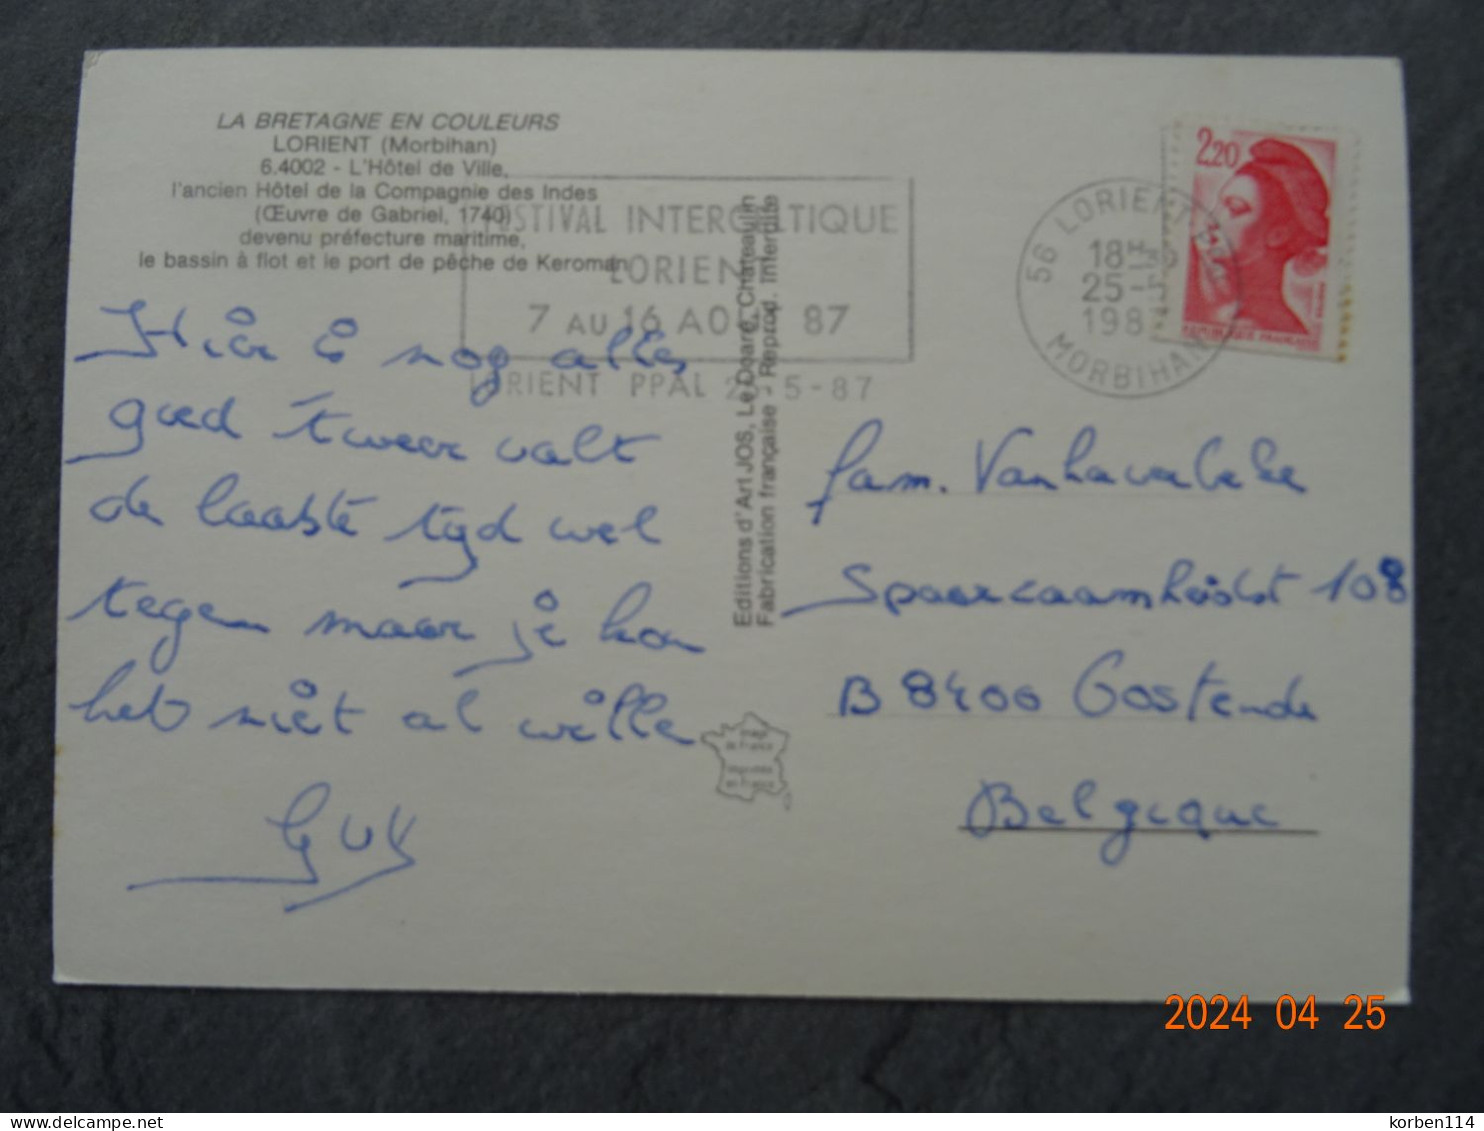 LA BRETAGNE EN COULEURS
LORIENT (Morbihan)
6.4002 - L'Hôtel de Ville,
l'ancien Hôtel de la Compagnie des Indes
(Œuvre de Gabriel, 1740)
devenu préfecture maritime,
le bassin à flot et le port de pêche de Keroman
FESTIVAL INTERCELTIQUE
LORIENT
7 AU 16 AOUT 87
LORIENT PPAL 25-5-87
56 LORIENT
18H
25-5
1987
MORBIHAN
2,20
REPUBLIQUE FRANÇAISE
Editions d'Art JOS, Le Doaré, Châteaulin
Fabrication française - Reprod. Interdite
Hier is nog alles
goed 't weer valt
de laatste tijd wel
tegen maar je kan
het niet al wille
GUY
fam. Vanhaverbeke
Spaarzaamheidst 108
B 8400 Oostende
Belgique
2024 04 25
korben114